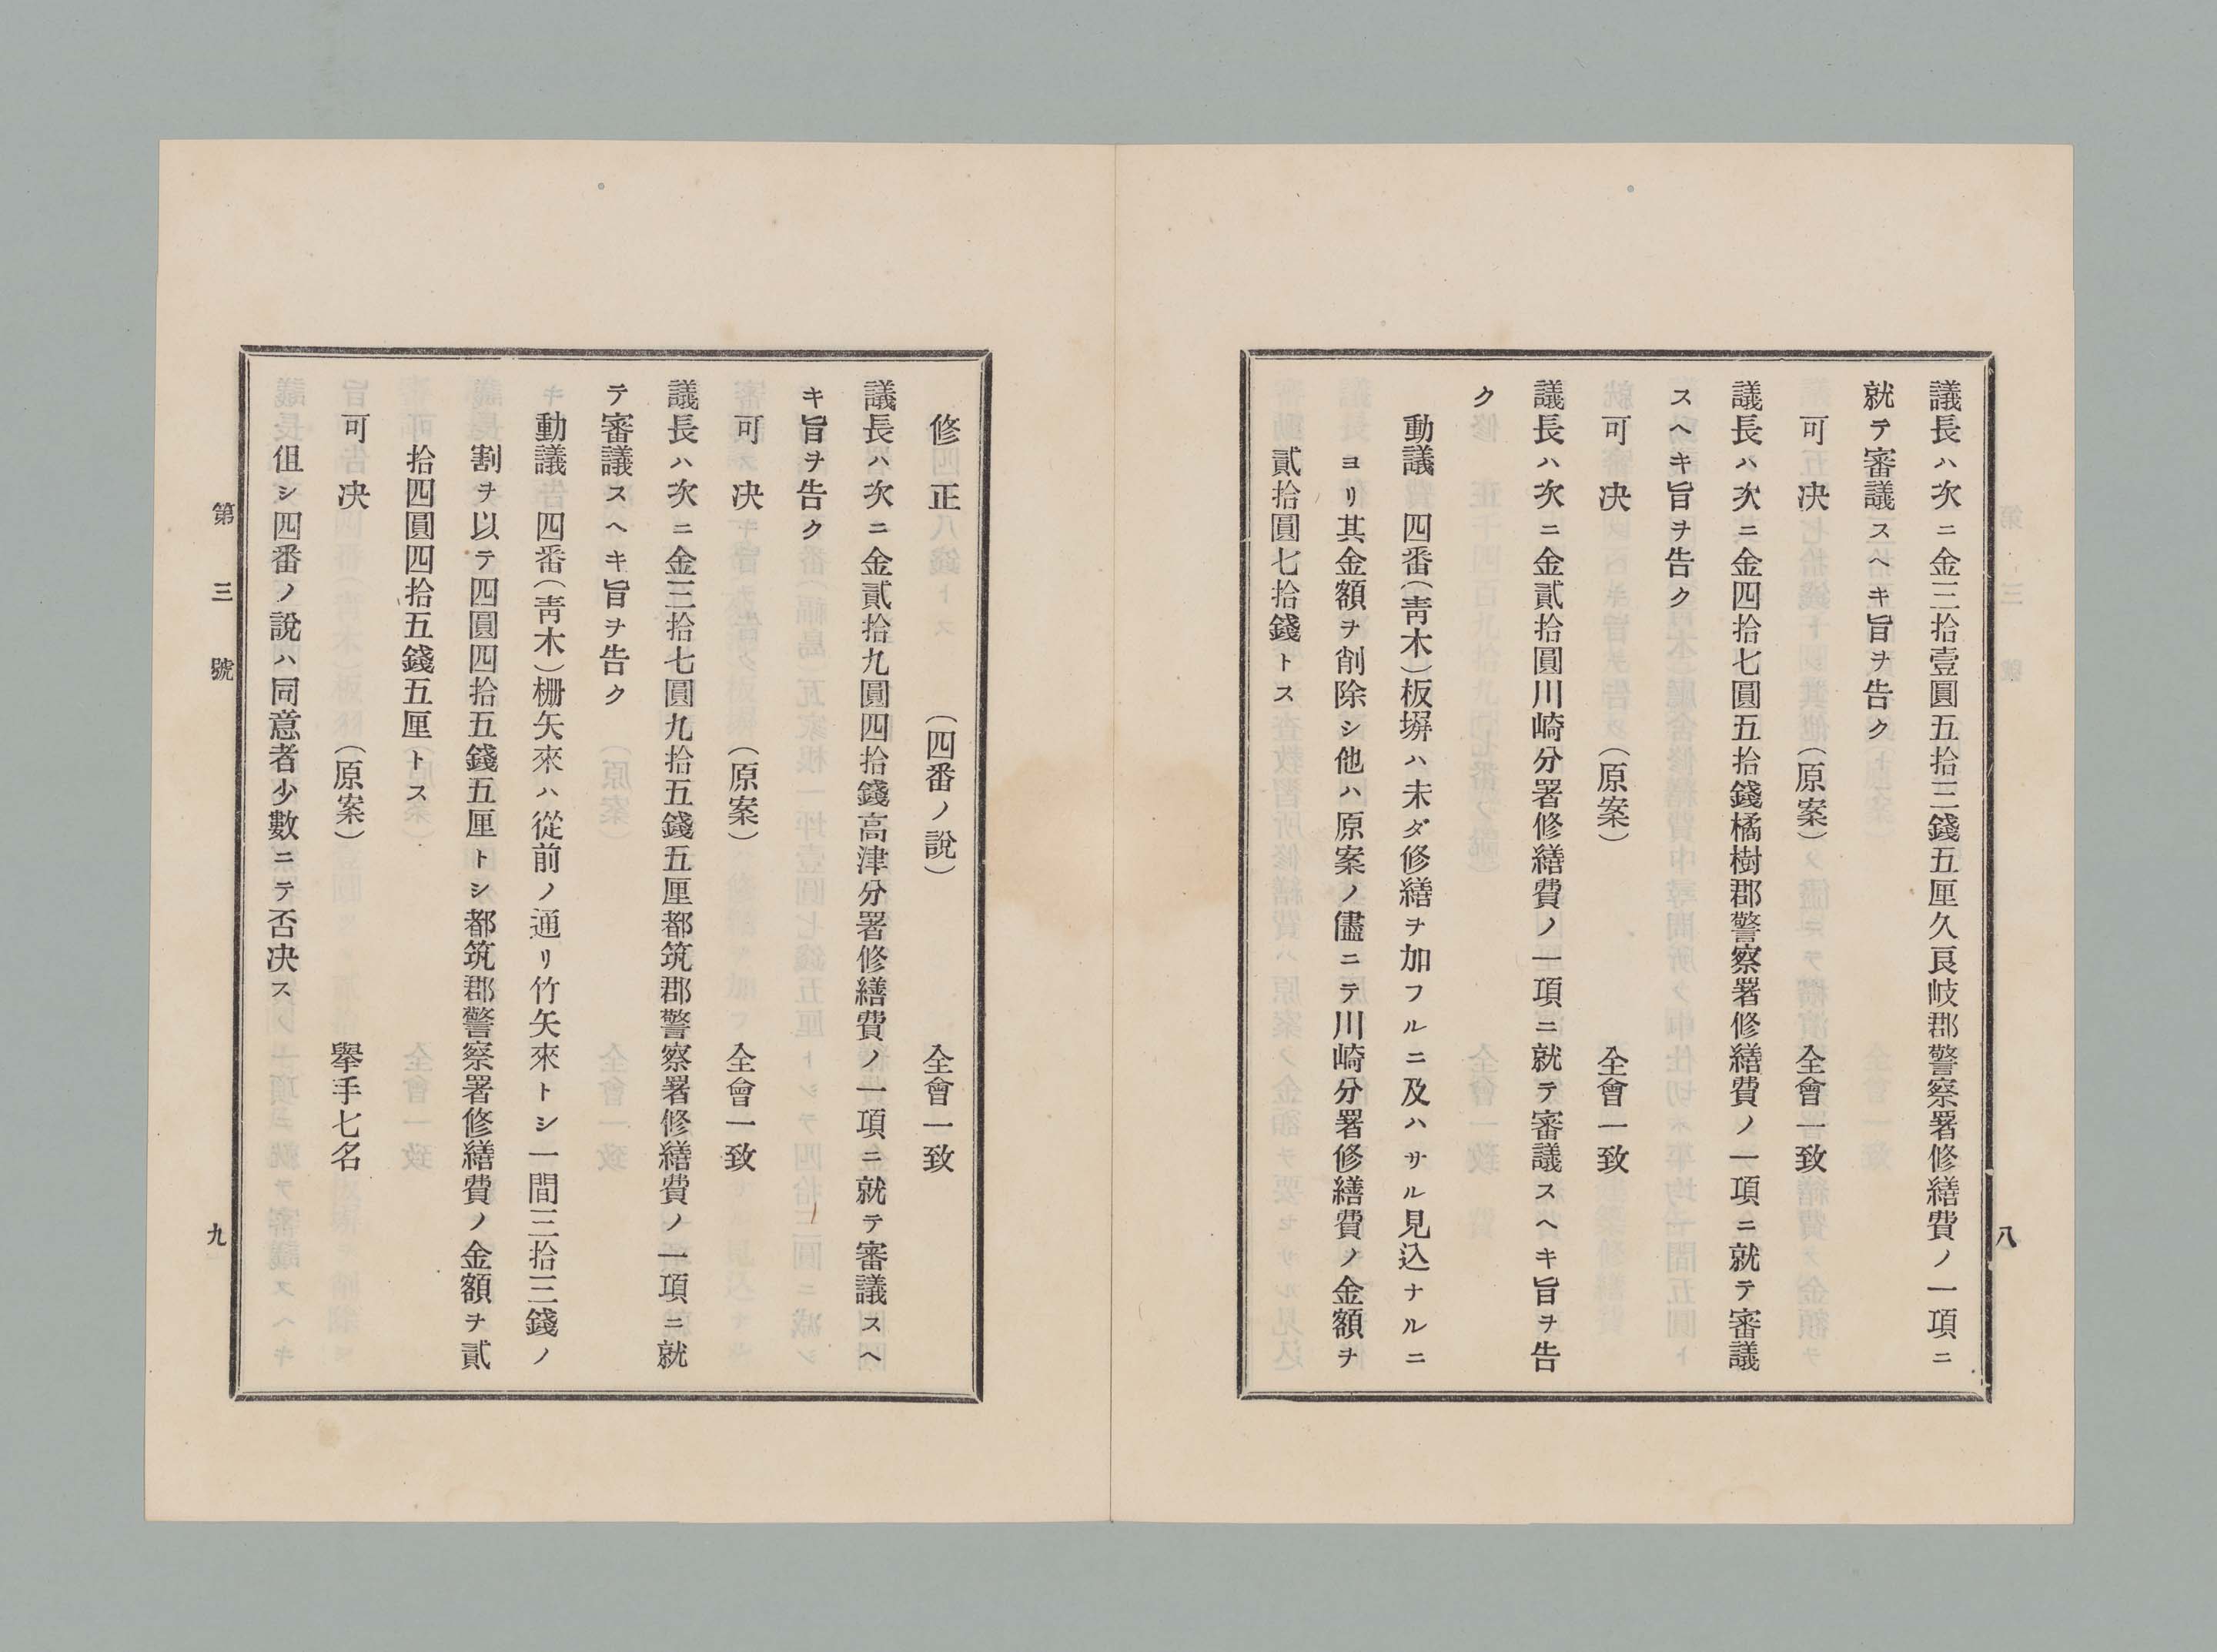 八
議長ハ次ニ金三拾壹圓五拾三錢五厘久良岐郡警察署修繕費ノ一項ニ
就テ審議スヘキ旨ヲ告ク
可決　（原案）　全會一致
議長ハ次ニ金四拾七圓五拾錢橘樹郡警察署修繕費ノ一項ニ就テ審議
スヘキ旨ヲ告ク
可決　（原案）　全會一致
議長ハ次ニ金貳拾圓川崎分署修繕費ノ一項ニ就テ審議スヘキ旨ヲ告
ク
動議　四番（靑木）板塀ハ未ダ修繕ヲ加フルニ及ハサル見込ナルニ
ヨリ其金額ヲ削除シ他ハ原案ノ儘ニテ川崎分署修繕費ノ金額ヲ
貳拾圓七拾錢トス
修正　（四番ノ說）　全會一致
議長ハ次ニ金貳拾九圓四拾錢高津分署修繕費ノ一項ニ就テ審議スヘ
キ旨ヲ告ク
可決　（原案）　全會一致
議長ハ次ニ金三拾七圓九拾五錢五厘都筑郡警察署修繕費ノ一項ニ就
テ審議スヘキ旨ヲ告ク
動議　四番（靑木）柵矢來ハ從前ノ通リ竹矢來トシ一間三拾三錢ノ
割ヲ以テ四圓四拾五錢五厘トシ都筑郡警察署修繕費ノ金額ヲ貳
拾四圓四拾五錢五厘トス
可決　（原案）　擧手七名
但シ四番ノ說ハ同意者少數ニテ否決ス
第三號　九